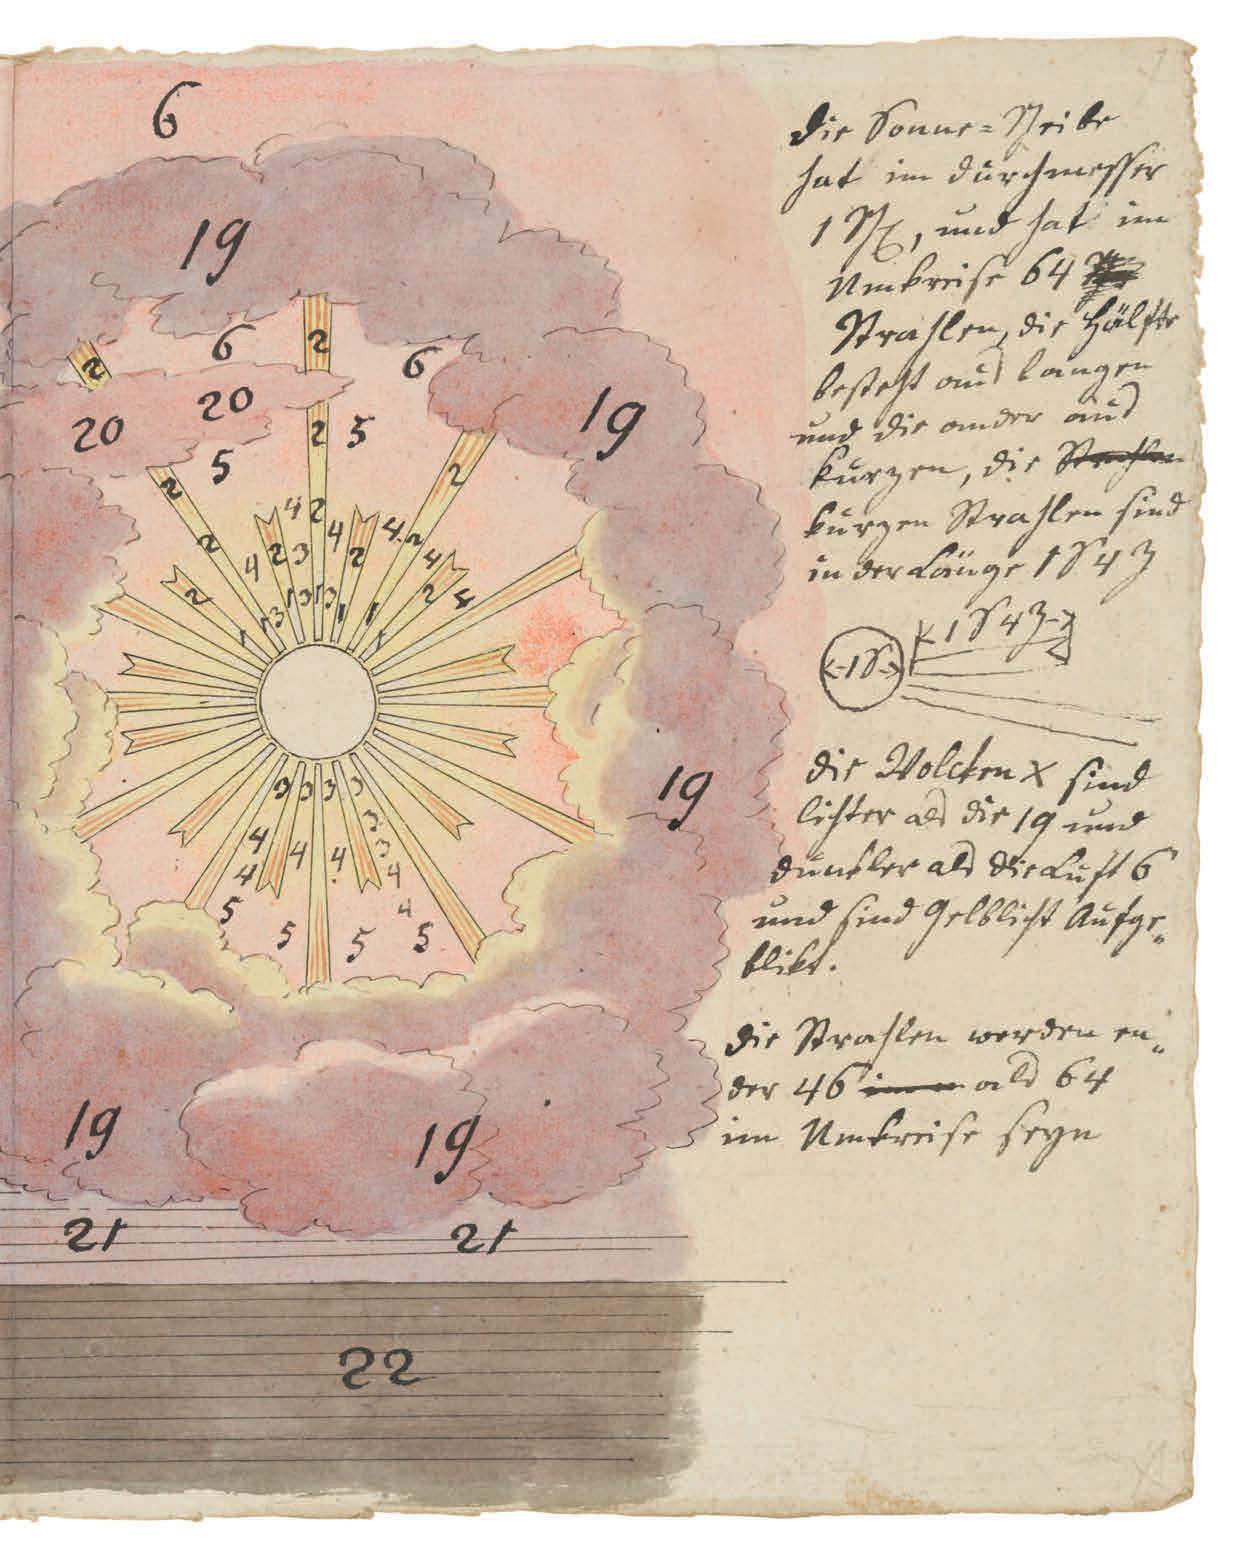 6
19
2
2
6
6
20
20
19
5
2
5
2
2
2
4
2
4
4
2
2
3
2
2
4
4
2
2
4
3
3
3
1
1
1
1
19
3
3
3
3
3
4
3
4
4
4
4
4
5
5
5
5
19
19
21
21
22
die Sonne=Scheibe
hat im durchmesser
1 Sch, und hat im
Umkreise 64
Strahlen, die Hälfte
besteht aus langen
und die ander aus
kurzen, die Strahlen
kurzen Strahlen sind
in der Länge 1 S 4 Z
1 S 4 Z
1 S
die Wolcken X sind
lichter als die 19 und
dunkler als die Luft 6
und sind Gelblicht Aufge„
blikt.
die Strahlen werden en„
der 46 als 64
im Umkreise seyn